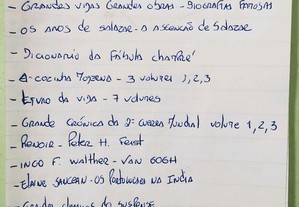 - GRANDES VIDAS GRANDES OBRAS - BIOGRAFIAS FAMOSAS
- OS ANOS DE SALAZAR - A ASCENÇÃO DE SALAZAR
- DICIONARIO DA FRIBULA CHARRÉ
- A COZINHA MODENA - 3 VOLUMES 1,2,3
- LIVRO DA VIDA - 7 VOLUMES
- GRANDE CRÓNICA DA 2ª GUERRA MUNDIAL VOLUME 1,2,3
- RENOIR - PETER H. FEIST
- INGO F. WALTHER - VAN GOGH
- ELAINE SANCEAU - OS PORTUGUESES NA INDIA
CLASSICOS DO SUSPENSE